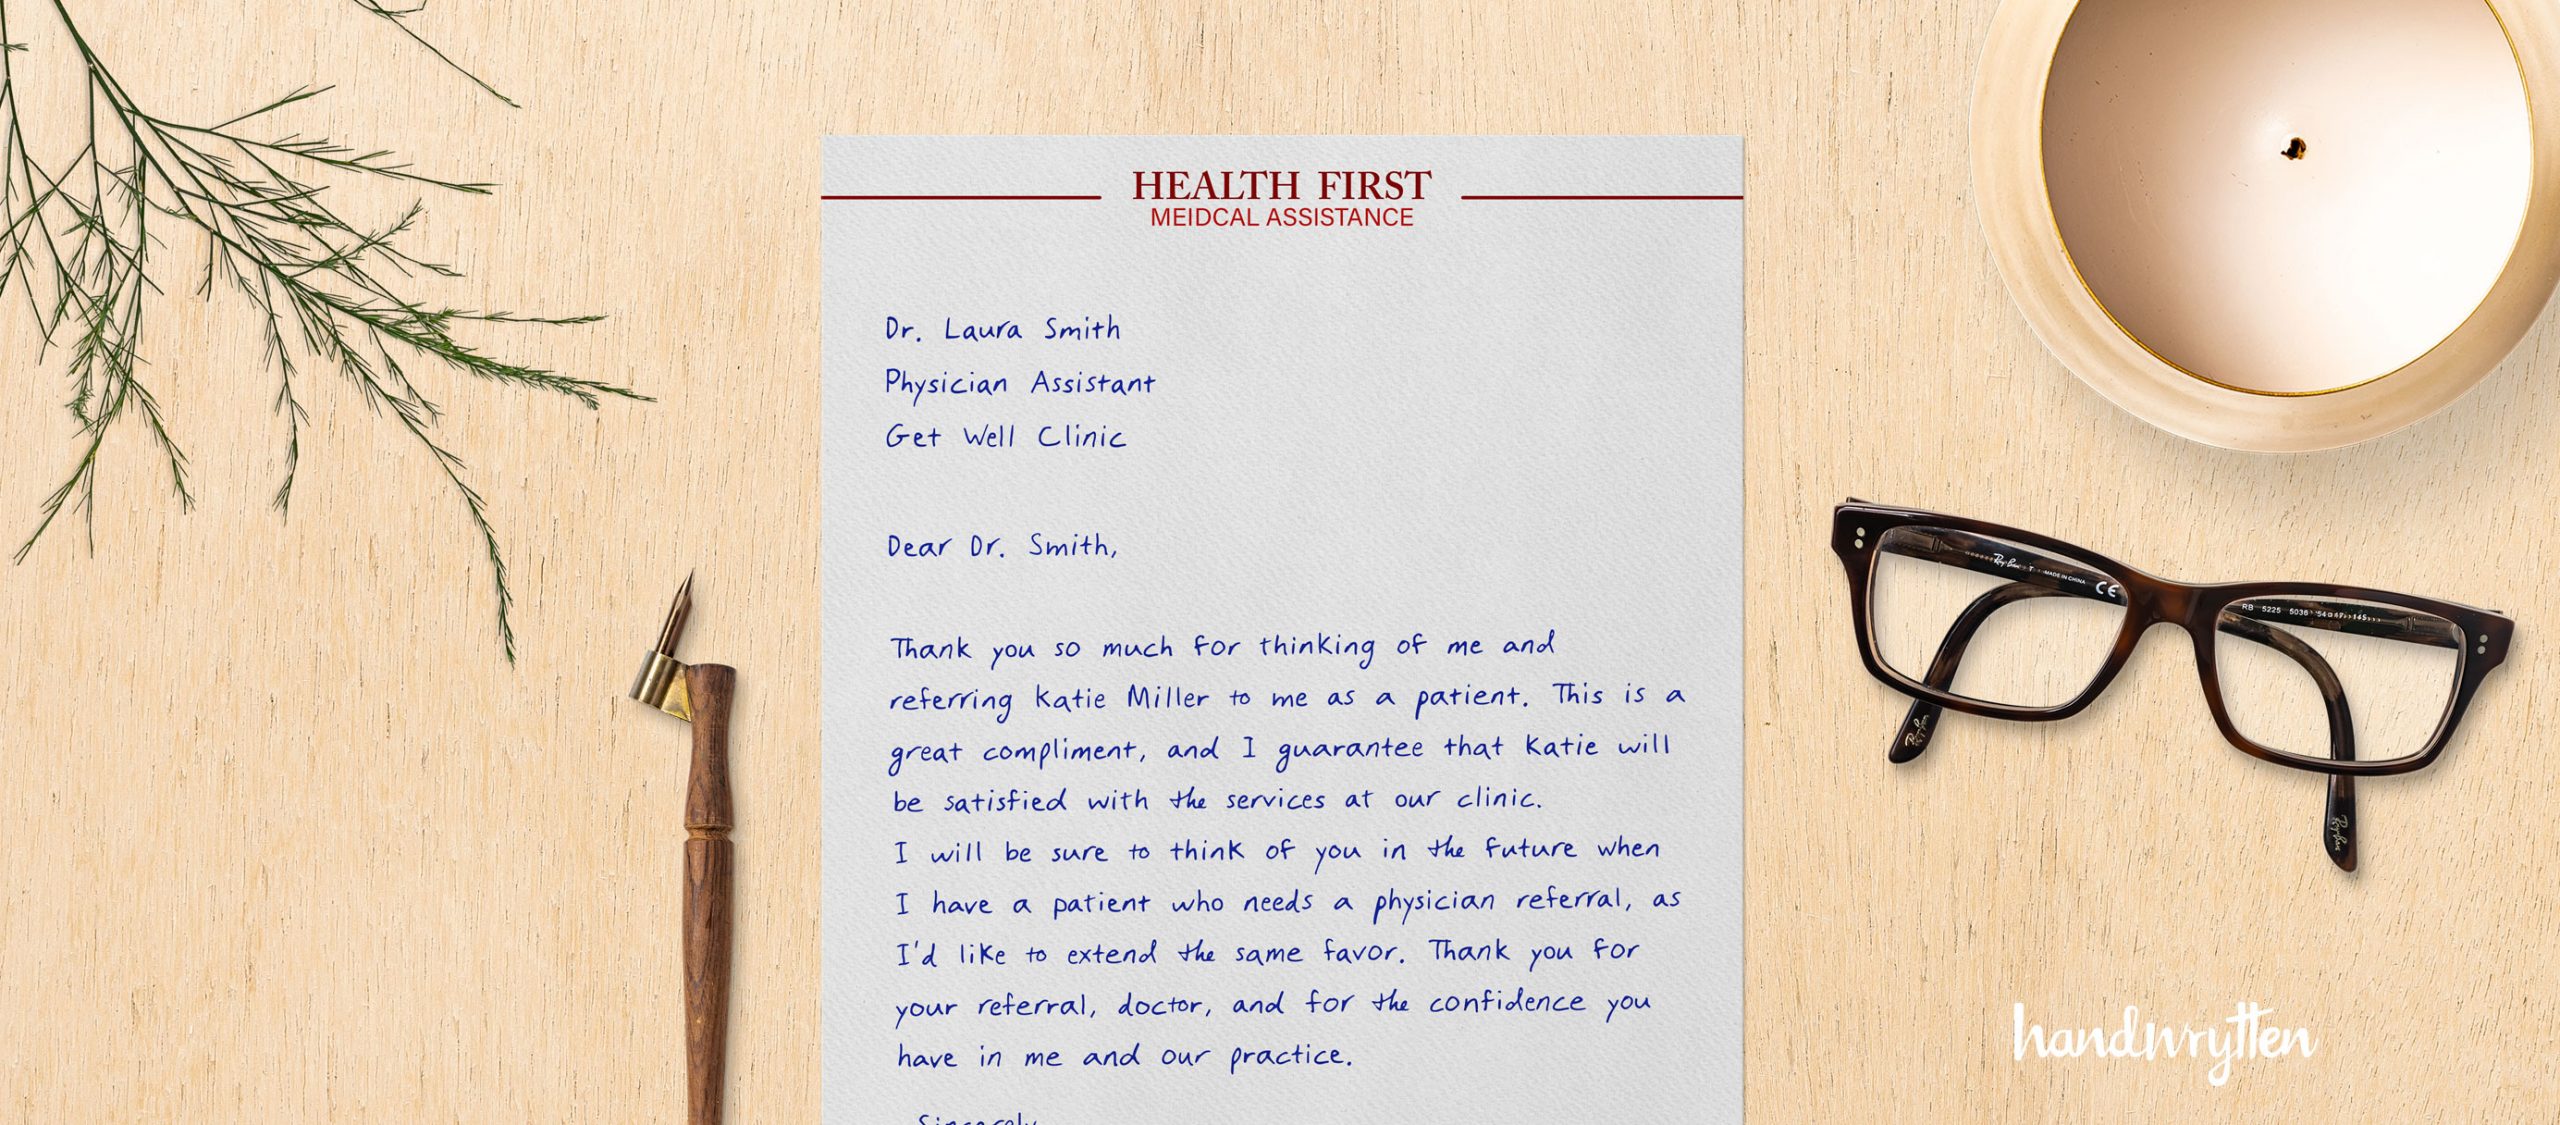 HEALTH FIRST
MEIDCAL ASSISTANCE
Dr. Laura Smith
Physician Assistant
Get Well Clinic
Dear Dr. Smith,
Thank you so much for thinking of me and
referring Katie Miller to me as a patient. This is a
great compliment, and I guarantee that Katie will
be satisfied with the services at our clinic.
I will be sure to think of you in the future when
I have a patient who needs a physician referral, as
I'd like to extend the same favor. Thank you for
your referral, doctor, and for the confidence you
have in me and our practice.
Sincerely
Ray-Ban MADE IN CHINA CE
RB 5225 5036 54 17 145
Ray-Ban
Ray-Ban
handwrytten